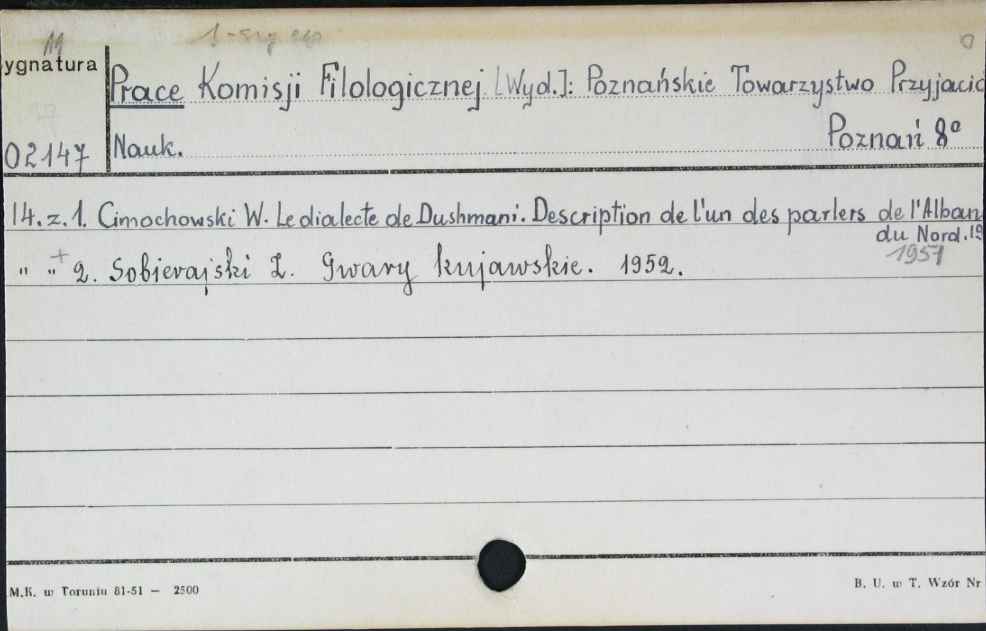 ygnatura
Prace Komisji Filologicznej [Wyd.]: Poznańskie Towarzystwo Przyjació
02147 Nauk. Poznań 8°
14. z. 1. Cimochowski W. Le dialecte de Dushmani. Description de l'un des parlers de l'Alban
du Nord. 19
1951
" " + 2. Sobierajski Z. Gwary kujawskie. 1952.
M.K. w Toruniu 81-51 — 2500
B. U. w T. Wzór Nr